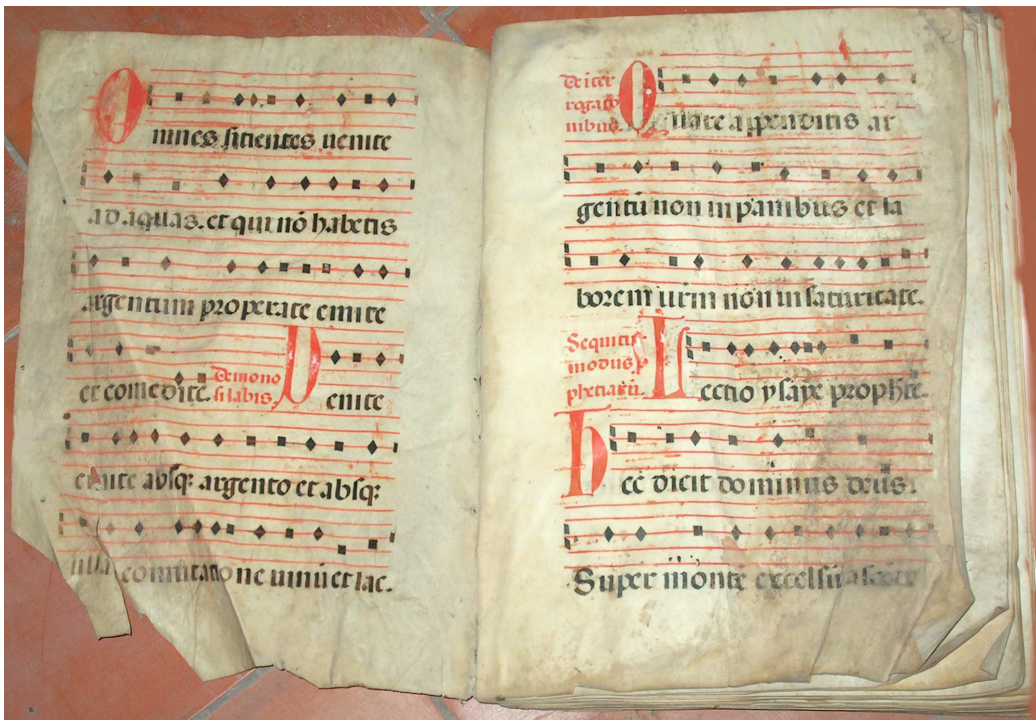 Omnes sitientes uenite
ad aquas. et qui nō habetis
argentum properate emite
et comedite.
De mono
silabis.
Uenite
emite absq; argento et absq;
ulla comutatione uinū et lac.
De iter
rogatō
nibus.
Quare appenditis ar
gentū non in panibus et la
borem urm̄ non in saturitate.
Sequitur
modus p
phetiarū.
Lectio ysaye prophēte.
Hec dicit dominus deus.
Super montē excelsū